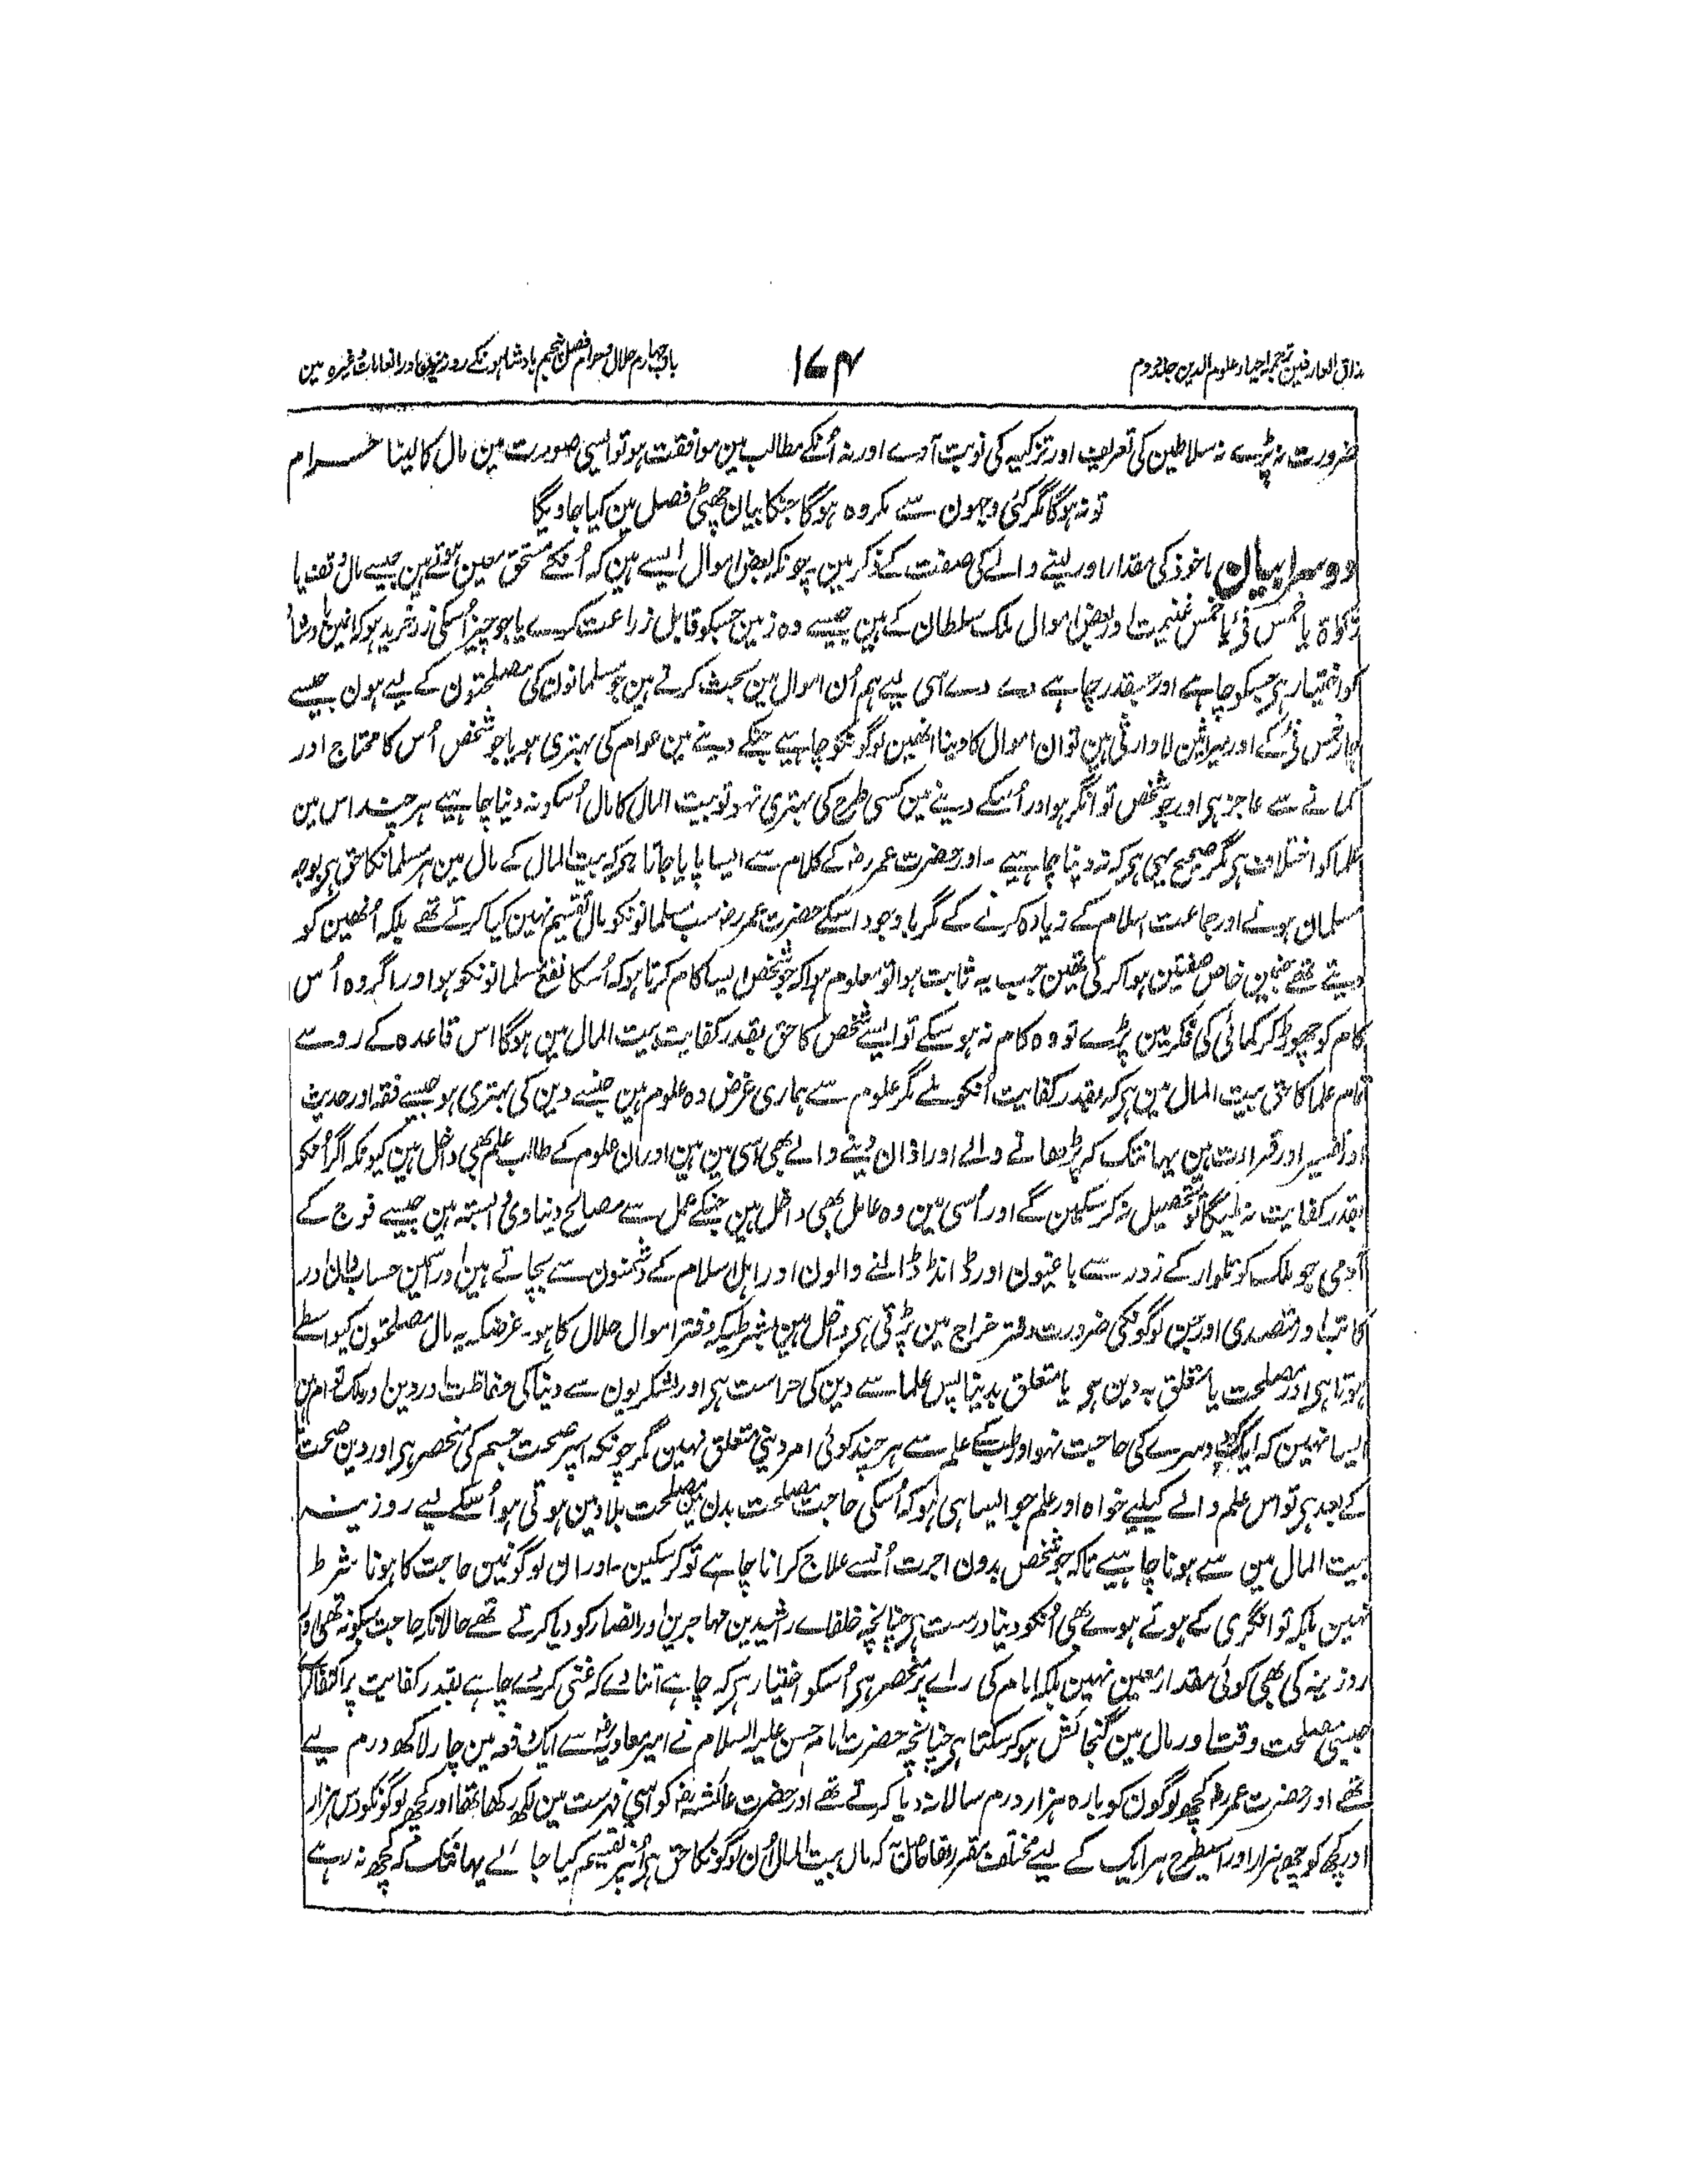 مذاق العارفین ترجمہ احیاء علوم الدین جلد دوم
۱۷۴
باب چہارم حلال و حرام فصل پنجم بادشاہونکے روزینون اور انعامات وغیرہ مین
ضرورت نہ پڑے نہ سلاطین کی تعریف اور تزکیہ کی نوبت آوے اور نہ اُنکے مطالب مین موافقت ہو تو ایسی صورت مین مال کا لینا حرام
تو نہ ہوگا مگر کئی وجہون سے مکروہ ہوگا جنکا بیان چھٹی فصل مین کیا جاویگا
دوسرا بیان ماخوذ کی مقدار اور لینے والے کی صفت کے ذکر مین ۔ چونکہ بعض اموال ایسے ہین کہ اُنکے مستحق معین ہوتے ہین جیسے مال وقف یا
زکوٰۃ یا خمس فئ یا خمس غنیمت اور بعض اموال ملک سلطان کے ہین جیسے وہ زمین جسکو قابل زراعت کرے یا جو چیز اُسکی زر خرید ہو کہ انمین بادشاہ
کو اختیار ہی جسکو چاہے اور جسقدر چاہے دے دے اسی لیے ہم اُن اموال مین بحث کرتے ہین جو مسلمانون کی مصلحتون کے لیے ہون جیسے
چار خمس فئ کے اور میراثین لاوارثی ہین تو ان اموال کا دینا انھین لوگونکو چاہیے جنکے دینے مین عوام کی بہتری ہو یا جو شخص اُس کا محتاج اور
کمانے سے عاجز ہی اور جو شخص توانگر ہو اور اُسکے دینے مین کسی طرح کی بہتری نہو تو بیت المال کا مال اُسکو نہ دینا چاہیے ہر چند اس مین
علما کو اختلاف ہی مگر صحیح یہی ہی کہ نہ دینا چاہیے ۔ اور حضرت عمر رضؓ کے کلام سے ایسا پایا جاتا ہی کہ بیت المال کے مال مین ہر مسلمانکا حق ہی بوجہ
مسلمان ہونے اور جماعت اسلام کے زیادہ کرنے کے مگر باوجود اسکے حضرت عمر رضؓ سب مسلمانونکو مال تقسیم نہین کیا کرتے تھے بلکہ اُنھین کو
دیتے تھے جنمین خاص صفتین ہوا کرتی تھین جب یہ ثابت ہوا تو معلوم ہوا کہ جو شخص ایسا کام کرتا ہو کہ اُسکا نفع مسلمانونکو ہو اور اگر وہ اُس
کام کو چھوڑ کر کمائی کی فکر مین پڑے تو وہ کام نہ ہو سکے تو ایسے شخص کا حق بقدر کفایت بیت المال مین ہوگا اس قاعدہ کے رو سے
تمام علما کا حق بیت المال مین ہی کہ بقدر کفایت اُنکو ملے مگر علوم سے ہماری غرض وہ علوم ہین جنسے دین کی بہتری ہو جیسے فقہ اور حدیث
اور تفسیر اور قرارت ہین یہانتک کہ پڑھانے والے اور اذان دینے والے بھی اسی مین ہین اور ان علوم کے طالب علم بھی داخل ہین کیونکہ اگر اُنکو
بقدر کفایت نہ ملیگا تو تحصیل نہ کر سکین گے اور اُسی مین وہ عامل بھی داخل ہین جنکے عمل سے مصالح دنیاوی وابستہ ہین جیسے فوج کے
آدمی جو ملک کو تلوار کے زور سے باغیون اور ڈانڈا ڈالنے والون اور اہل اسلام کے دشمنون سے بچاتے ہین اور اسمین حساب دان اور
کاتب اور متصدی اور جن لوگونکی ضرورت دفتر خراج مین پڑتی ہی داخل ہین بشرطیکہ دفتر اموال حلال کا ہو ۔ غرضکہ یہ مال مصلحتون کیواسطے
ہوتا ہی اور مصلحت یا متعلق بہ دین ہی یا متعلق بدنیا پس علما سے دین کی حراست ہی اور لشکریون سے دنیا کی حفاظت اور دین اور ملک توام ہین
ایسا نہین کہ ایک کو دوسرے کی حاجت نہو اور طب کے علم سے ہر چند کوئی امر دینی متعلق نہین مگر چونکہ اسپر صحت جسم کی منحصر ہی اور دین صحت
کے بعد ہی تو اس علم والے کیلیے خواہ اور علم جو ایسا ہی ہو کہ اُسکی حاجت مصلحت بدن مین مصلحت بلاد مین ہوتی ہو اُسکے لیے روزینہ
بیت المال مین سے ہونا چاہیے تاکہ جو شخص بدون اجرت اُنسے علاج کرانا چاہے تو کر سکین ۔ اور ان لوگونمین حاجت کا ہونا شرط
نہین بلکہ توانگری کے ہوتے ہوے بھی اُنکو دینا درست ہی چنانچہ خلفاے راشدین مہاجرین اور انصار کو دیا کرتے تھے حالانکہ حاجت سبکو نہ تھی اور
روزینہ کی بھی کوئی مقدار معین نہین بلکہ امام کی راے پر منحصر ہی اُسکو اختیار ہی کہ چاہے اتنا دے کہ غنی کر دے چاہے بقدر کفایت پر اکتفا کرے
جیسی مصلحت وقت اور مال مین گنجائش ہو کر سکتا ہی چنانچہ حضرت امام حسن علیہ السلام نے امیر معاویہ رضؓ سے ایک دفعہ مین چار لاکھ درم لیے
تھے اور حضرت عمر رضؓ کچھ لوگون کو بارہ ہزار درم سالانہ دیا کرتے تھے اور حضرت عائشہ رضؓ کو اسی فہرست مین لکھ رکھا تھا اور کچھ لوگونکو دس ہزار
اور کچھ کو چھ ہزار اور اسیطرح ہر ایک کے لیے مختلف مقرر تھا حاصل یہ کہ مال بیت المال اُن لوگونکا حق ہی اُنپر تقسیم کیا جائے یہانتک کہ کچھ نہ رہے